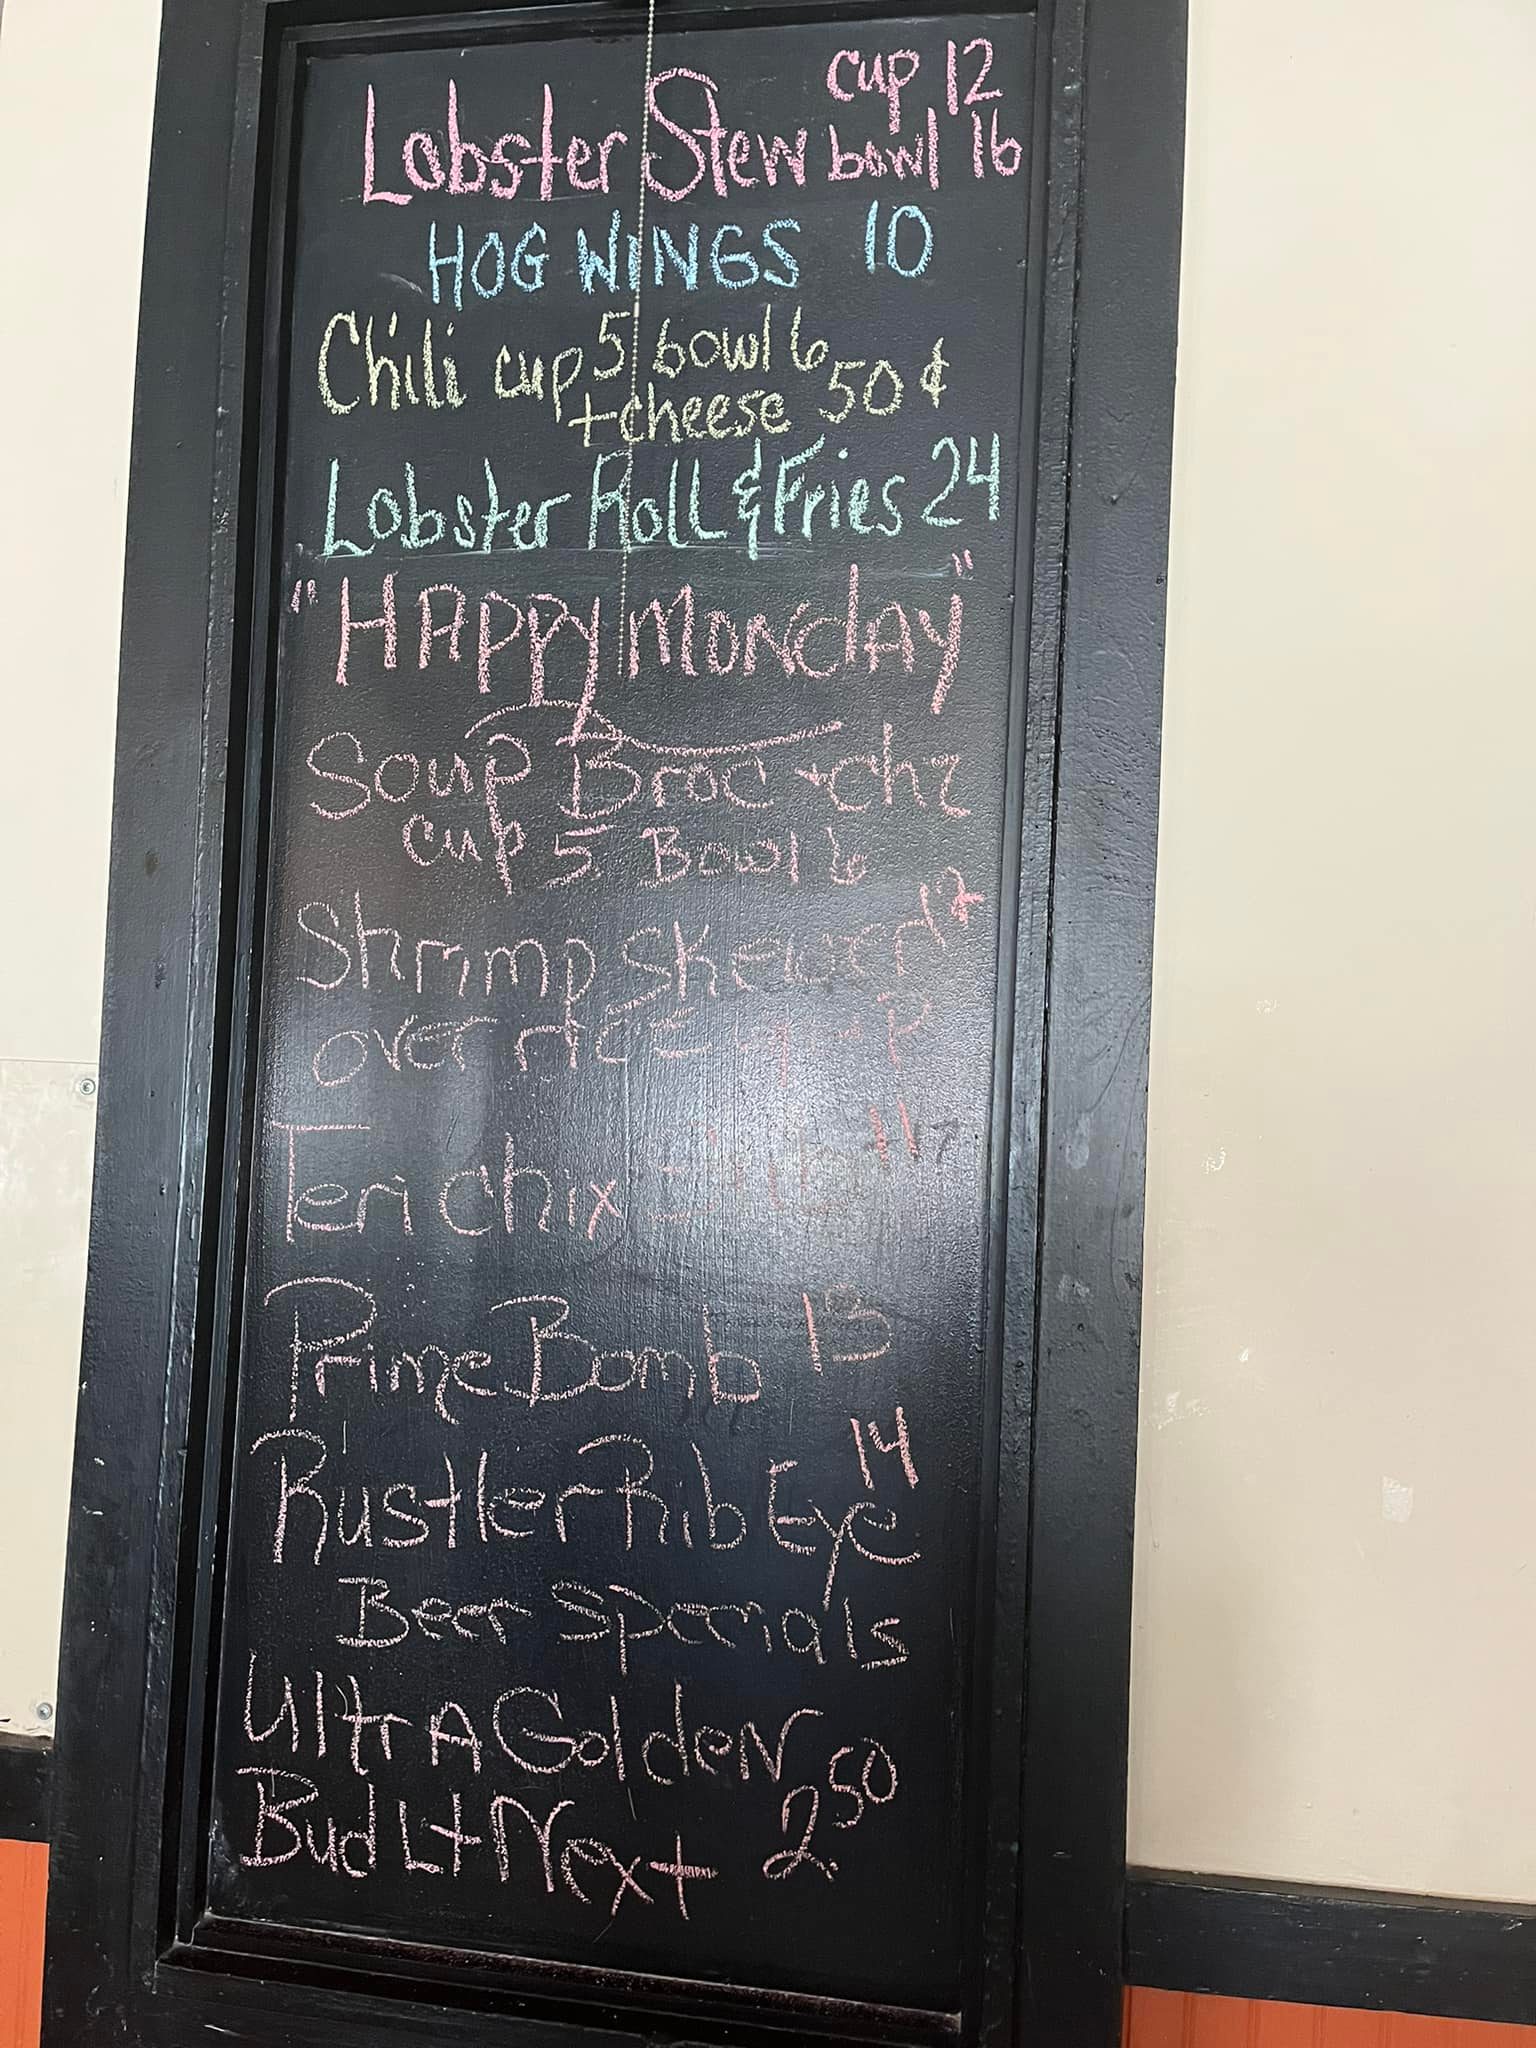 cup 12
Lobster Stew bowl 16
HOG WINGS 10
Chili cup 5 bowl 6
+cheese 50¢
Lobster Roll & Fries 24
"HAPPY MONdAY"
Soup Broc + chz
cup 5 Bowl 6
Shrimp skewer 12
over rice
Teri Chix 11
Prime Bomb 13
Rustler Rib Eye 14
Beer specials
UltrA GoldeN
Bud Lt Next 2.50